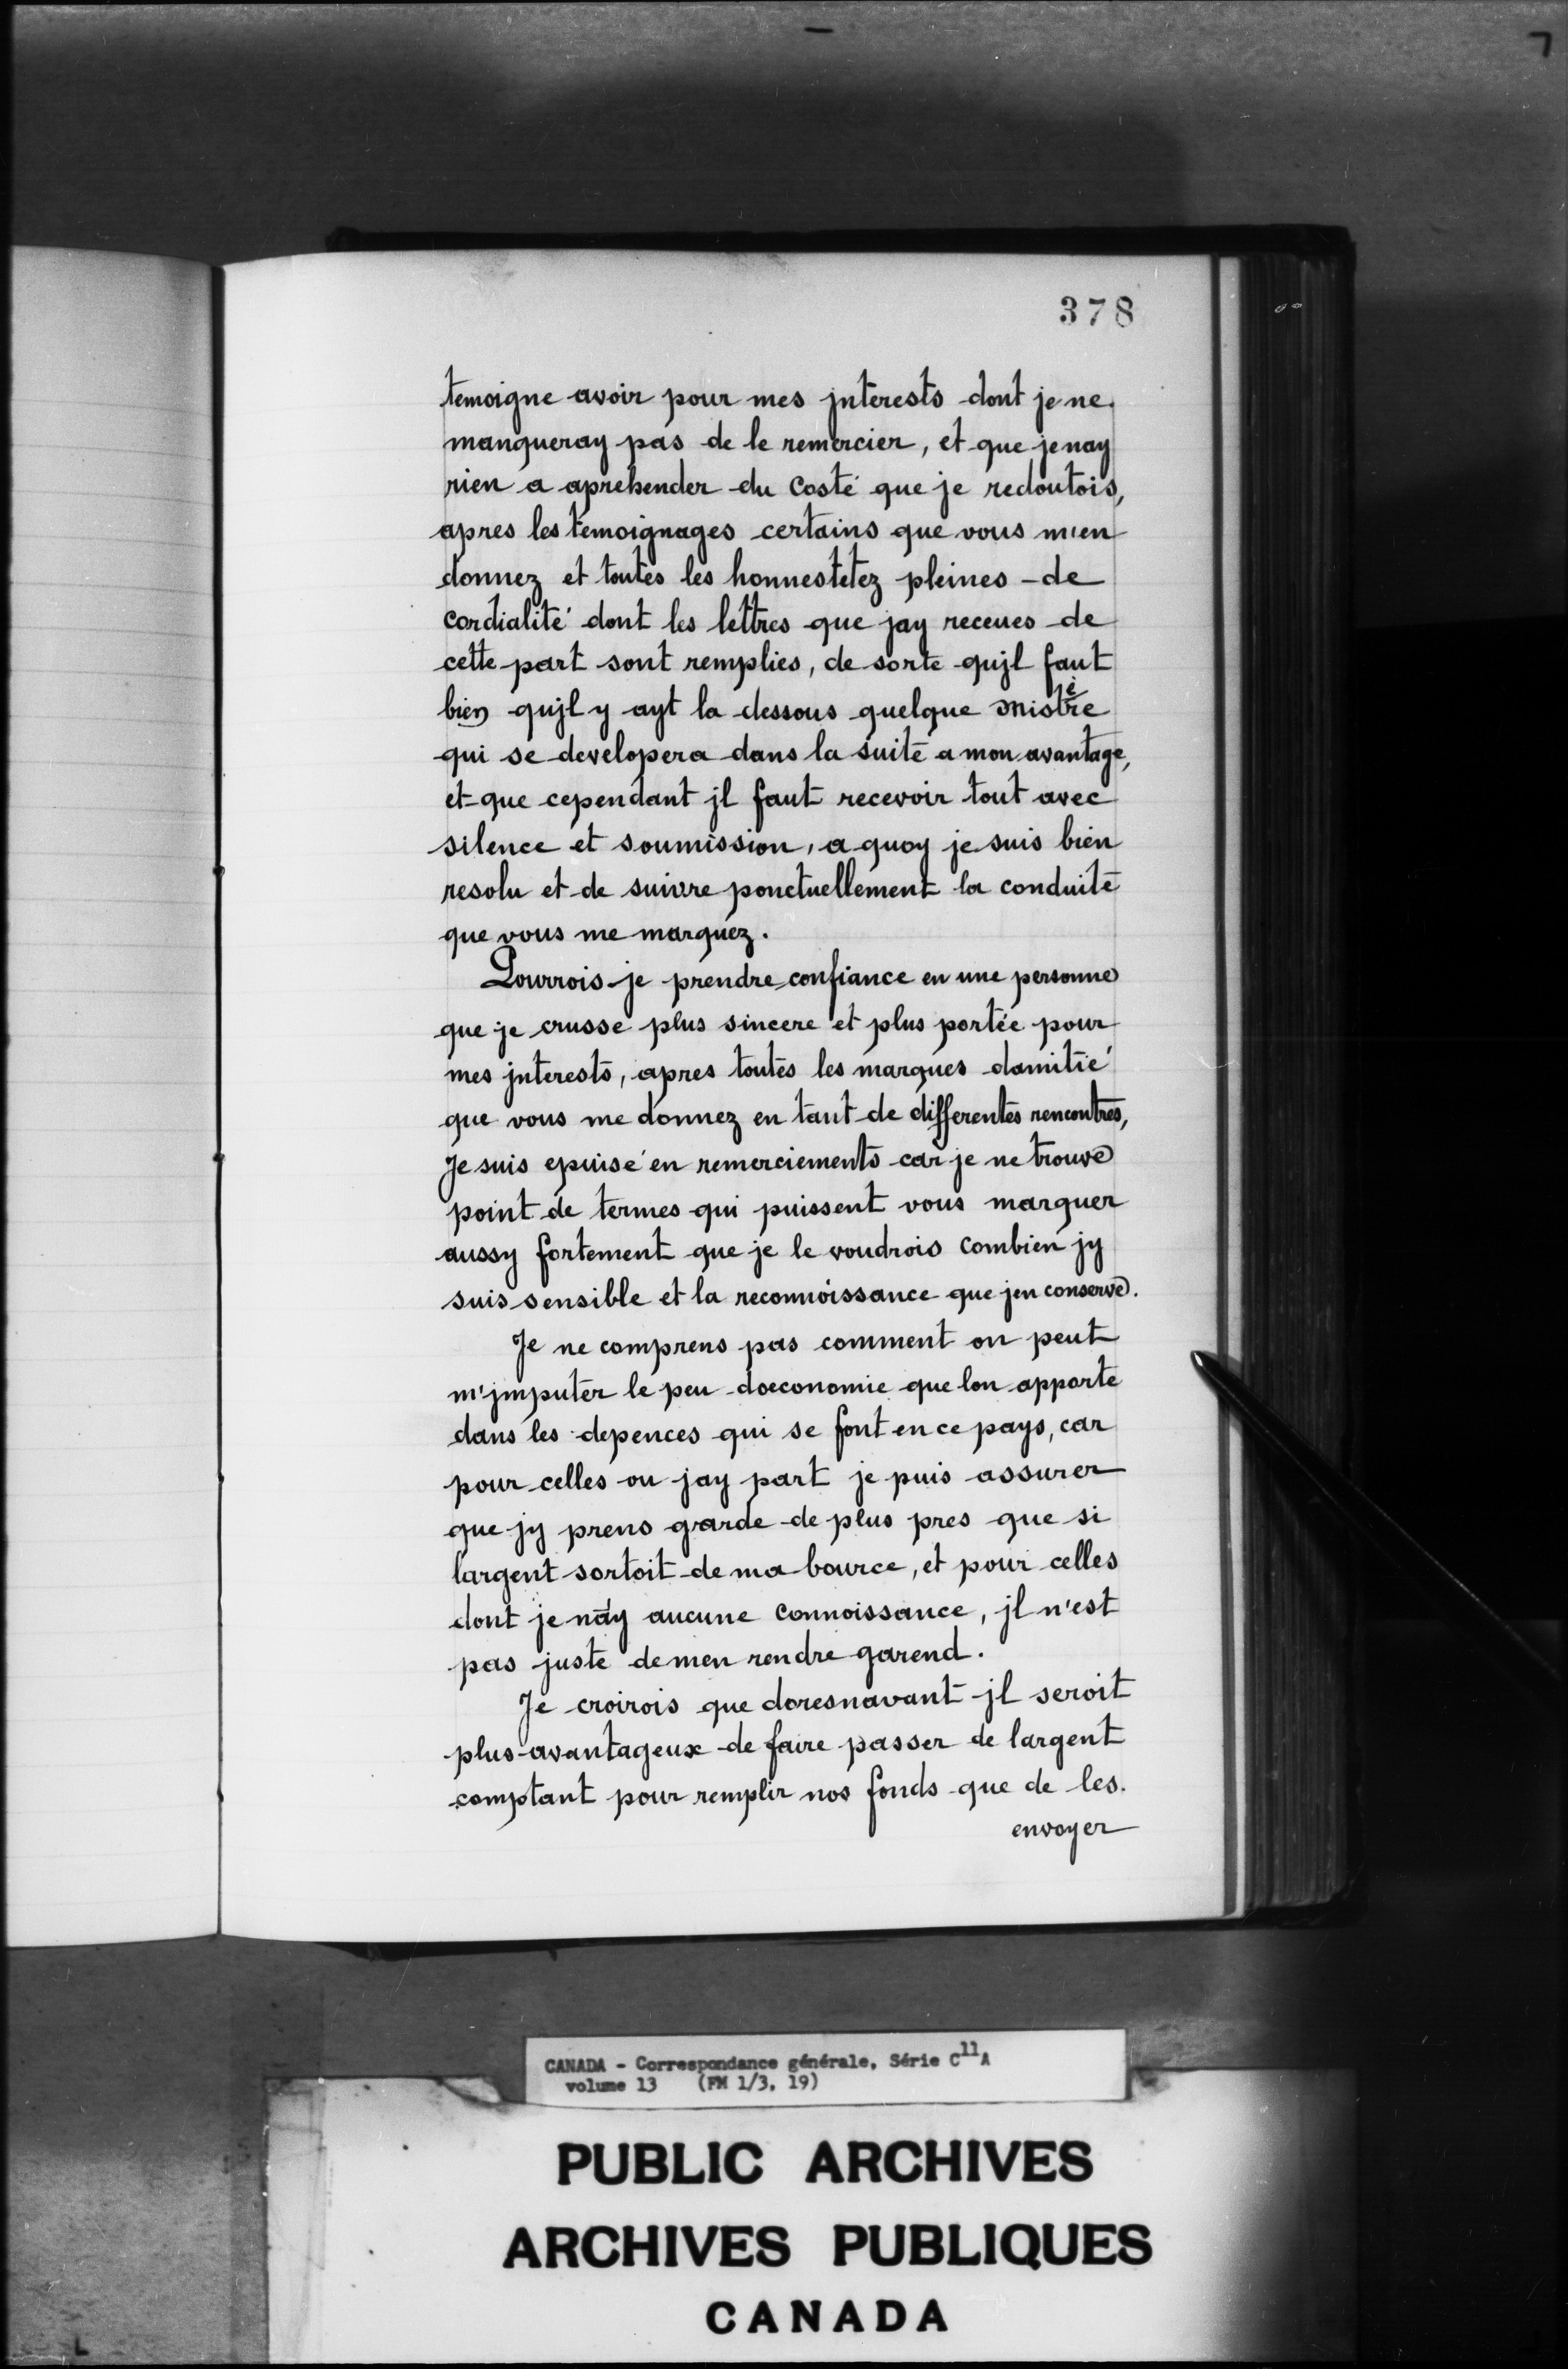 378
temoigne avoir pour mes jnterests dont je ne
manqueray pas de le remercier, et que jenay
rien a aprehender du Costé que je redoutois,
apres les temoignages certains que vous m'en
donnez et toutes les honnestetez pleines de
cordialité dont les lettres que jay receues de
cette part sont remplies, de sorte qujl faut
bien qujl y ayt la dessous quelque mistère
qui se developera dans la suite a mon avantage,
et que cependant jl faut recevoir tout avec
silence et soumission, a quoy je suis bien
resolu et de suivre ponctuellement la conduite
que vous me marquez.
Pourrois-je prendre confiance en une personne
que je crusse plus sincere et plus portée pour
mes jnterests, apres toutes les marques damitié
que vous me donnez en tant de differentes rencontres,
Je suis epuisé en remerciements car je ne trouve
point de termes qui puissent vous marquer
aussy fortement que je le voudrois combien jy
suis sensible et la reconnoissance que jen conserve.
Je ne comprens pas comment on peut
m'jmputer le peu doeconomie que lon apporte
dans les depences qui se font en ce pays, car
pour celles ou jay part je puis assurer
que jy prens garde de plus pres que si
largent sortoit de ma bource, et pour celles
dont je n'ay aucune connoissance, jl n'est
pas juste de men rendre garend.
Je croirois que doresnavant jl seroit
plus avantageux de faire passer de largent
comptant pour remplir nos fonds que de les
envoyer
CANADA - Correspondance générale, Série C11A
volume 13 (FM 1/3, 19)
PUBLIC ARCHIVES
ARCHIVES PUBLIQUES
CANADA